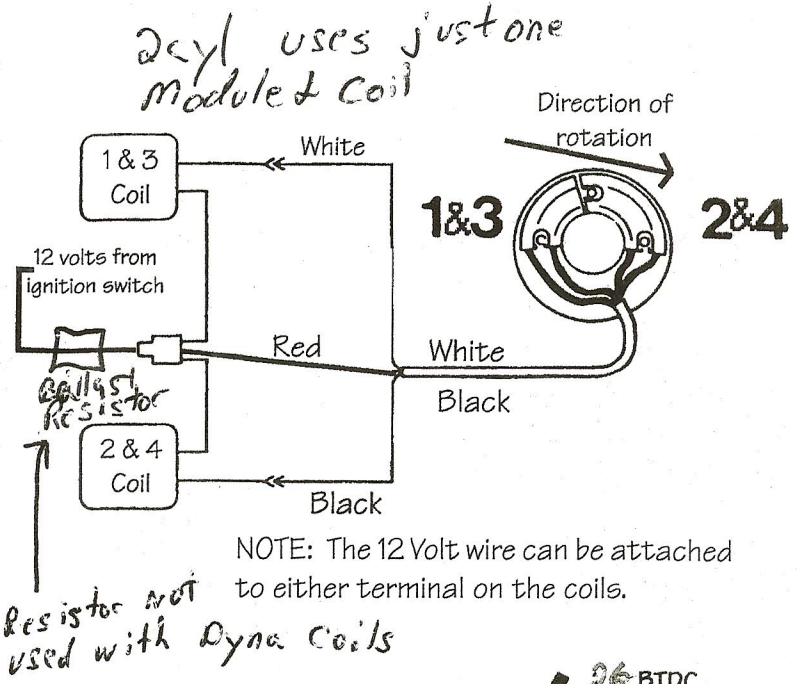 2cyl uses just one
Module & Coil
Direction of
rotation
1 & 3
Coil
White
1&3
2&4
12 volts from
ignition switch
Red
White
Black
Ballast
Resistor
2 & 4
Coil
Black
NOTE: The 12 Volt wire can be attached
to either terminal on the coils.
Resistor NOT
used with Dyna Coils
BTDC